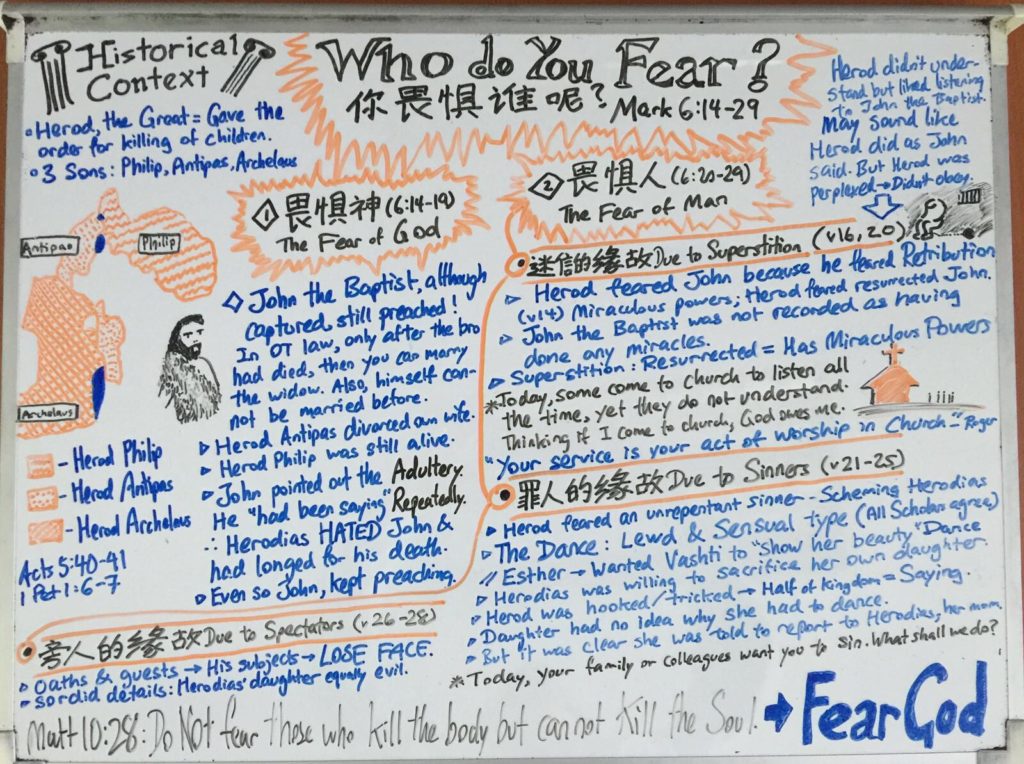 Historical
Context
Who do You Fear?
你畏惧谁呢? Mark 6:14-29
Herod, the Great = Gave the
order for killing of children.
3 Sons: Philip, Antipas, Archelaus
Antipas
Philip
Archelaus
- Herod Philip
- Herod Antipas
- Herod Archelaus
Acts 5:40-41
1 Pet 1:6-7
1 畏惧神 (6:14-19)
The Fear of God
John the Baptist, although
captured, still preached!
In OT law, only after the bro
had died, then you can marry
the widow. Also, himself can-
not be married before.
Herod Antipas divorced own wife.
Herod Philip was still alive.
John pointed out the Adultery.
He "had been saying" Repeatedly.
∴ Herodias HATED John &
had longed for his death.
Even so John, kept preaching.
2 畏惧人 (6:20-29)
The Fear of Man
Herod didn't under-
stand but liked listening
to John the Baptist.
May sound like
Herod did as John
said. But Herod was
perplexed → Didn't obey.
迷信的缘故 Due to Superstition (v16, 20)
Herod feared John because he feared Retribution
(v14) Miraculous powers; Herod feared resurrected John.
John the Baptist was not recorded as having
done any miracles.
Superstition: Resurrected = Has Miraculous Powers
*Today, some come to church to listen all
the time, yet they do not understand.
Thinking if I come to church, God owes me.
"Your service is your act of worship in Church" - Roger
罪人的缘故 Due to Sinners (v21-25)
Herod feared an unrepentant sinner - Scheming Herodias
The Dance: Lewd & Sensual type (All Scholars agree)
// Esther → Wanted Vashti to "show her beauty" Dance
Herodias was willing to sacrifice her own daughter.
Herod was hooked/tricked → Half of kingdom = Saying.
Daughter had no idea why she had to dance.
But it was clear she was told to report to Herodias, her mom
*Today, your family or colleagues want you to sin. What shall we do?
旁人的缘故 Due to Spectators (v26-28)
Oaths & guests → His subjects → LOSE FACE.
Sordid details: Herodias' daughter equally evil.
Matt 10:28: Do NOT fear those who kill the body but cannot kill the Soul. → Fear God